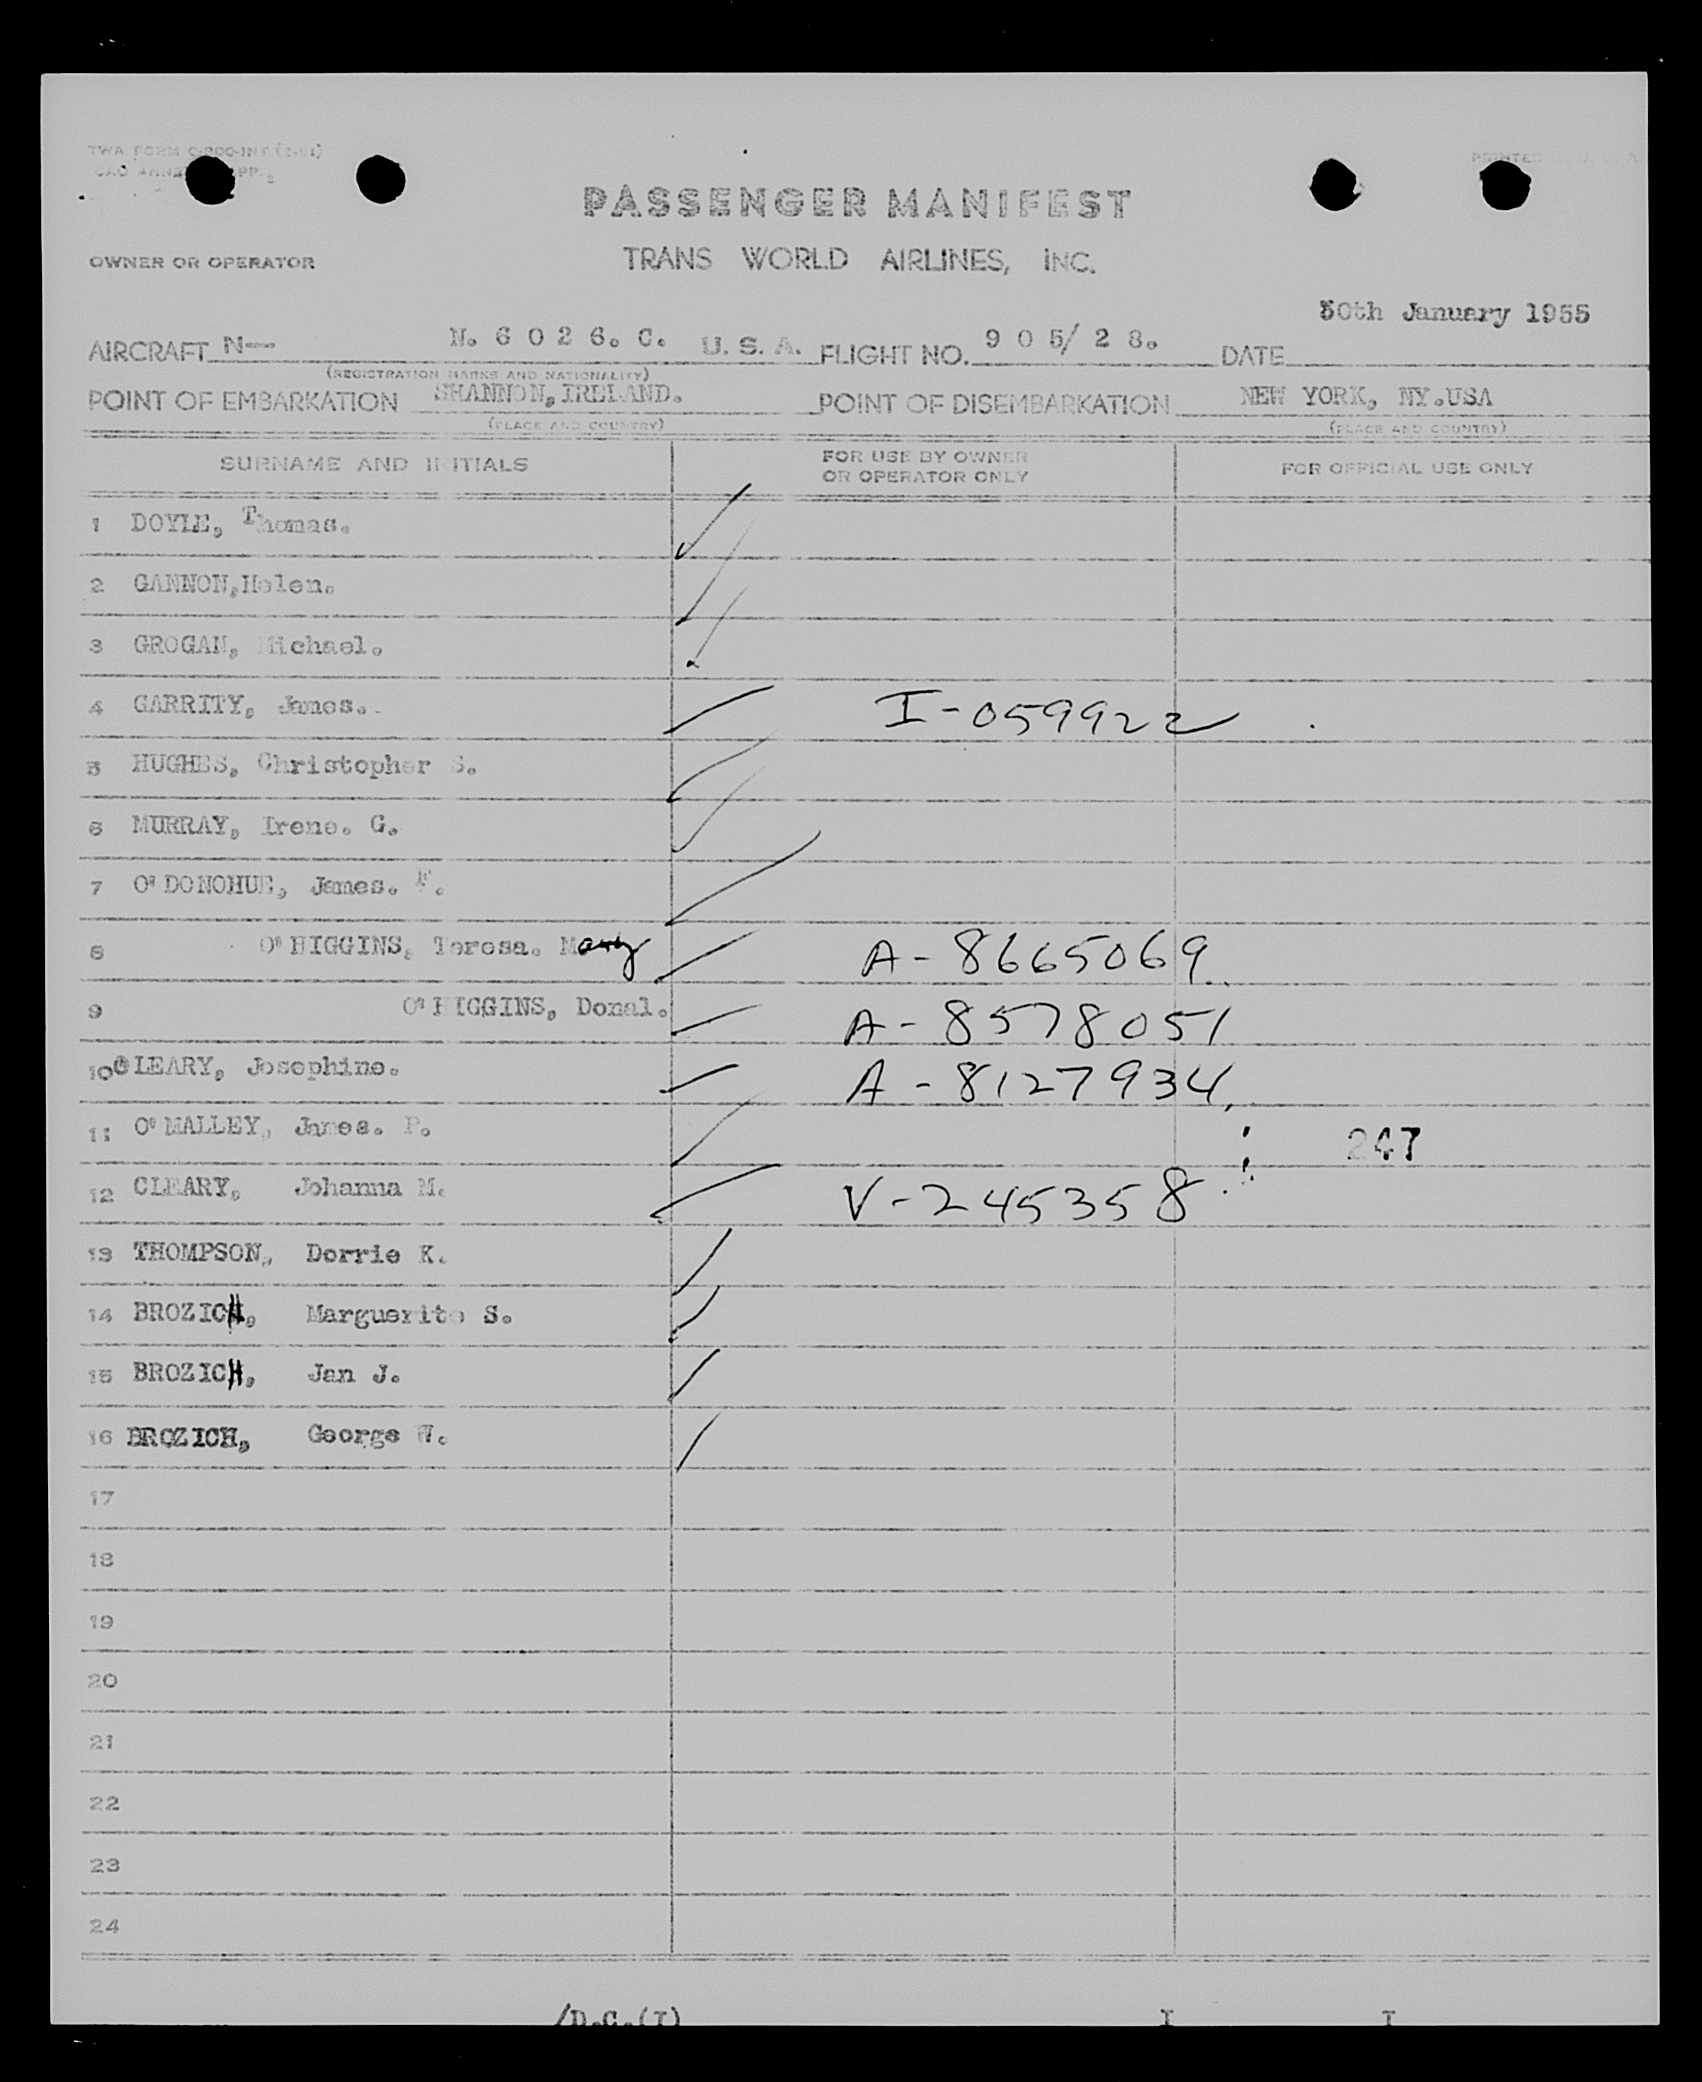 TWA FORM
PRINTED
PASSENGER MANIFEST
OWNER OR OPERATOR TRANS WORLD AIRLINES, INC.
30th January 1955
AIRCRAFT N-- N. 6 0 2 6. C. U. S. A. FLIGHT NO. 9 0 5/ 2 8. DATE
(REGISTRATION MARKS AND NATIONALITY)
POINT OF EMBARKATION SHANNON, IRELAND. POINT OF DISEMBARKATION NEW YORK, NY.USA
(PLACE AND COUNTRY) (PLACE AND COUNTRY)
SURNAME AND INITIALS FOR USE BY OWNER OR OPERATOR ONLY FOR OFFICIAL USE ONLY
1 DOYLE, Thomas.
2 GANNON,Helen.
3 GROGAN, Michael.
4 GARRITY, James.. I-059922
5 HUGHES, Christopher S.
6 MURRAY, Irene. G.
7 O'DONOHUE, James. F.
8 O'HIGGINS, Teresa. Mary A-8665069
9 O'HIGGINS, Donal. A-8578051
10 LEARY, Josephine. A-8127934
11 O'MALLEY, James. P. 247
12 CLEARY, Johanna M. V-245358
13 THOMPSON, Dorrie K.
14 BROZICH, Marguerite S.
15 BROZICH, Jan J.
16 BROZICH, George W.
17
18
19
20
21
22
23
24
/D.C.(I) I I